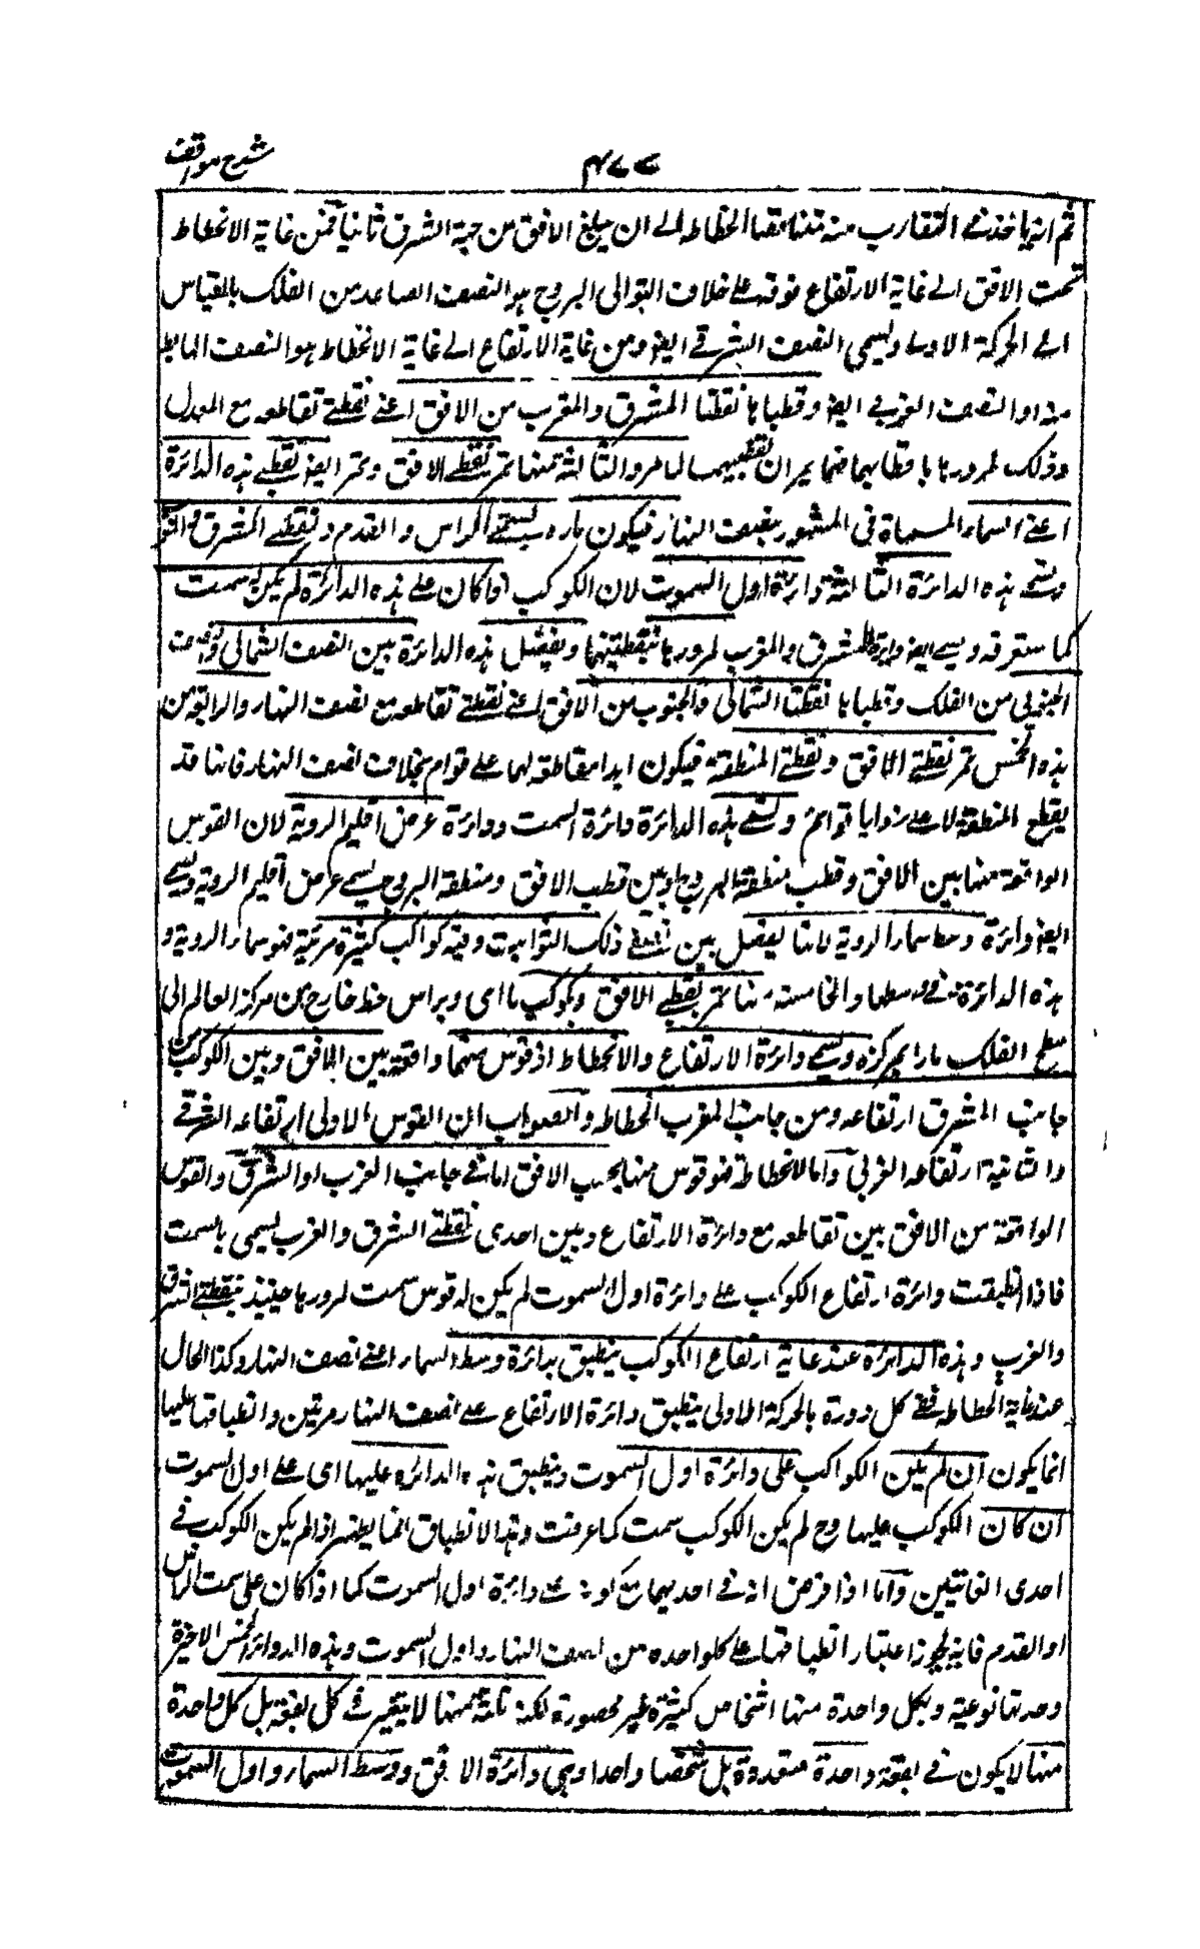 شرح مواقف
۴۷۷
ثم انه یاخذ فے التقارب منه متناقصا انحطاطه الے ان یبلغ الافق من جهة الشرق ثانیا فمن غایة الانحطاط
تحت الافق الے غایة الارتفاع فوقه علے خلاف التوالی البروج هو النصف الصاعد من الفلک بالقیاس
الے الحرکة الاولے ویسمی النصف الشرقے ایضا ومن غایة الارتفاع الے غایة الانحطاط هو النصف الهابط
منه او النصف الغربے ایضا وقطباها نقطتا المشرق والمغرب من الافق اعنے نقطتے تقاطعه مع المعدل
وذلک لمرورها باقطابهما فتمران بقطبیهما لما مر والثالثة منها تمر بقطبے الافق وتمر ایضا بقطبے هذه الدائرة
اعنے السماء المسماة فی المشهور بنصف النهار فیکون مارة بسمتے الراس والقدم ونقطتے المشرق والمغرب
وتسمے هذه الدائرة الثالثة دائرة اول السموت لان الکوکب اذا کان علے هذه الدائرة لم یکن له سمت
کما ستعرفه ویسمے ایضا دائرة المشرق والمغرب لمرورها بنقطتیهما ویفصل هذه الدائرة بین النصف الشمالی والنصف
الجنوبی من الفلک وقطباها نقطتا الشمالی والجنوب من الافق اعنے نقطتے تقاطعه مع نصف النهار والرابعة من
هذه الخمس تمر بقطبے الافق وبقطبے المنطقة فیکون ابدا مقاطعة لهما علے قوایم بخلاف نصف النهار فانها قد
یقطع المنطقة لا علے زوایا قوائم وتسمے هذه الدائرة دائرة السمت ودائرة عرض اقلیم الرویة لان القوس
الواقعة منها بین الافق وقطب منطقة البروج او بین قطب الافق ومنطقة البروج یسمے عرض اقلیم الرویة ویسمے
ایضا دائرة وسط سماء الرویة لانها یفصل بین نصفے ذلک الثوابت وفیه کواکب کثیرة مرئیة فهو سماء الرویة و
هذه الدائرة فے وسطها والخامسة منها تمر بقطبے الافق وبکوکب ما ای وبراس خط خارج من مرکز العالم الی
سطح الفلک مارا بمرکزه ویسمے دائرة الارتفاع والانحطاط اذ قوس منها واقعة بین الافق وبین الکوکب من
جانب المشرق ارتفاعه ومن جانب المغرب انحطاطه والصواب ان القوس الاولی ارتفاعه الشرقے
والثانیة ارتفاعه الغربی واما الانحطاط فهو قوس منها تحت الافق اما فے جانب الغرب او الشرق والقوس
الواقعة من الافق بین تقاطعه مع دائرة الارتفاع وبین احدی نقطتے الشرق والغرب یسمی بالسمت
فاذا انطبقت دائرة ارتفاع الکوکب علے دائرة اول السموت لم یکن له قوس سمت لمرورها حینئذ بنقطتے الشرق
والغرب وهذه الدائرة عند غایة ارتفاع الکوکب ینطبق بدائرة وسط السماء اعنے نصف النهار وکذا الحال
عند غایة انحطاطه ففے کل دورة بالحرکة الاولی ینطبق دائرة الارتفاع علے نصف النهار مرتین وانطباقها علیها
انما یکون ان لم یکن الکواکب علی دائرة اول السموت وینطبق هذه الدائره علیها ای علے اول السموت
ان کان الکوکب علیها وح لم یکن الکوکب سمت کما عرفت وهذا الانطباق انما یظهر اذا لم یکن الکوکب فے
احدی الغایتین واما اذا فرض انه فے احدیهما مع کونه علے دایرة اول السموت کما اذا کان علی سمت الراس
او القدم فانه یجوز اعتبار انطباقها علے کل واحده من نصف النهار واول السموت وهذه الدوائر الخمس الاخیرة
وحدتها نوعیة وبکل واحدة منها اشخاص کثیرة غیر محصورة لکن ثلثة منها لا یتغیر فے کل بقعة بل کل واحدة
منها لا یکون فے بقعة واحدة متعددة بل شخصا واحدا وهی دائرة الافق ووسط السماء واول السموت